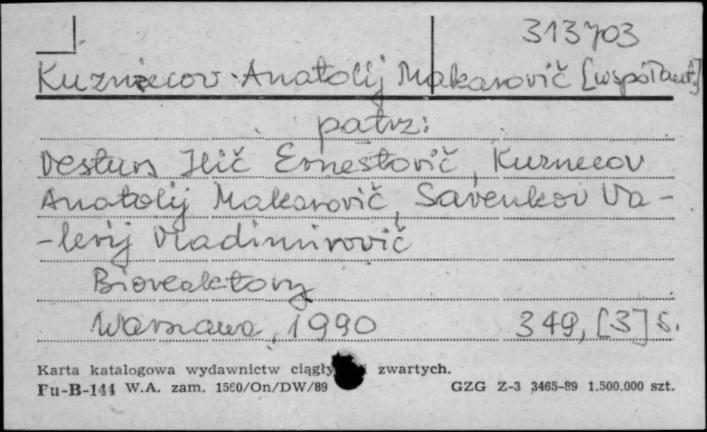 313703
Kuzniecov Anatolij Makarovič [współaut.]
patrz:
Vesturs Ilič Ernestovič, Kuznecov
Anatolij Makarovič, Savenkov Va-
-lerij Vladimirovič
Bioreaktory
Warszawa, 1990 349, [3] s.
Karta katalogowa wydawnictw zwartych.
Pu-B-144 W.A. zam. 1560/On/DW/89 GZG Z-3 3465-89 1.500.000 szt.